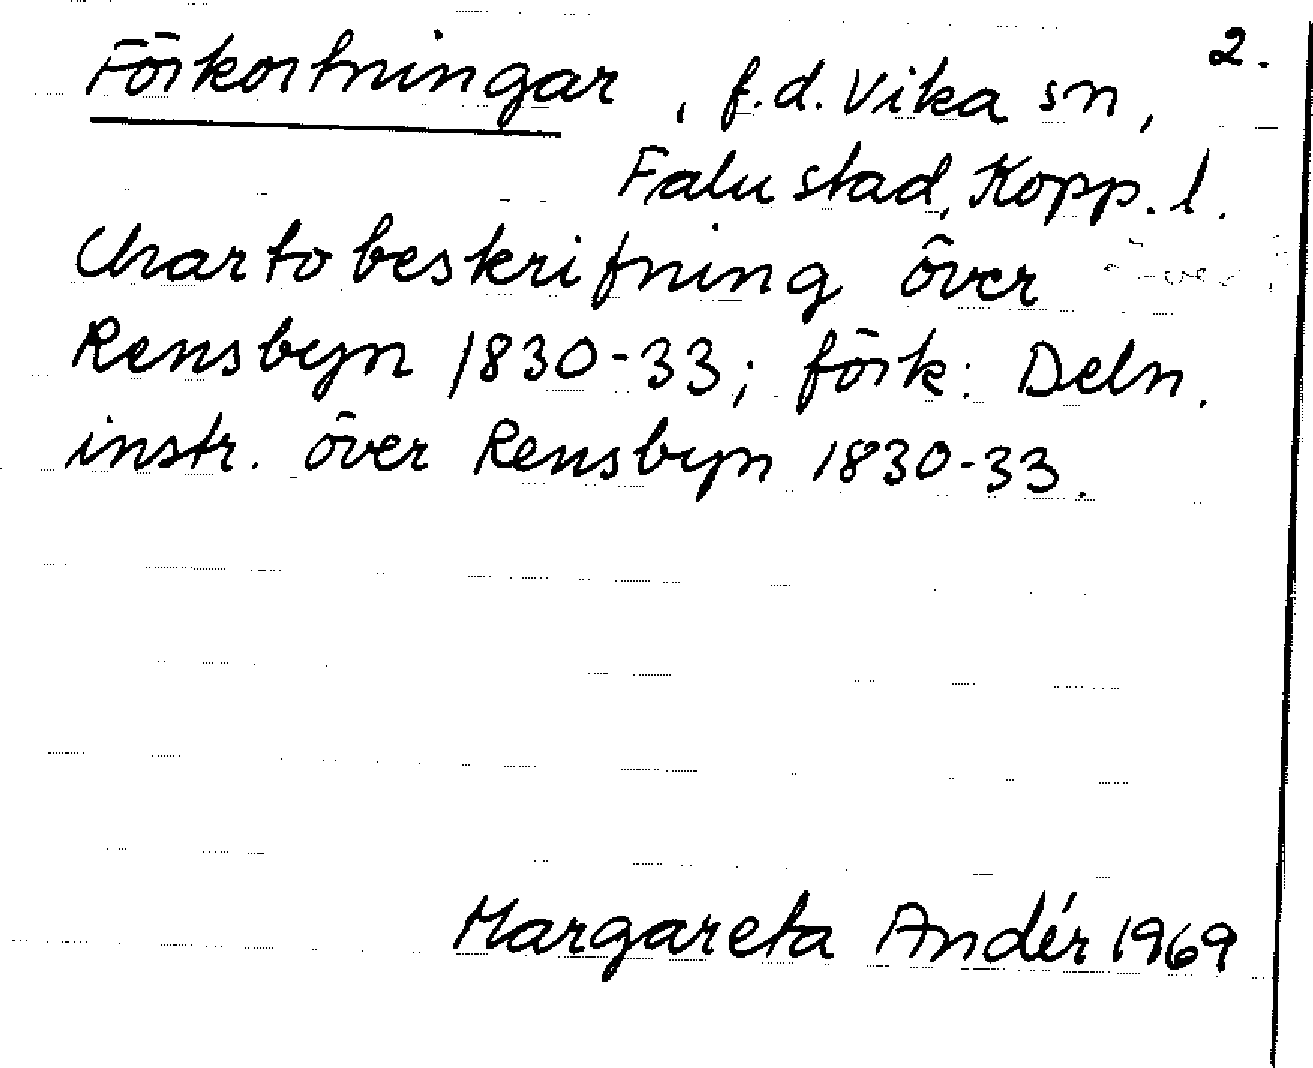 Förkortningar, f.d. Vika sn, 2.
Falu stad, Kopp. l.
Chartobeskrifning över
Rensbyn 1830-33; förk: Deln.
instr. över Rensbyn 1830-33.
Margareta Andér 1969